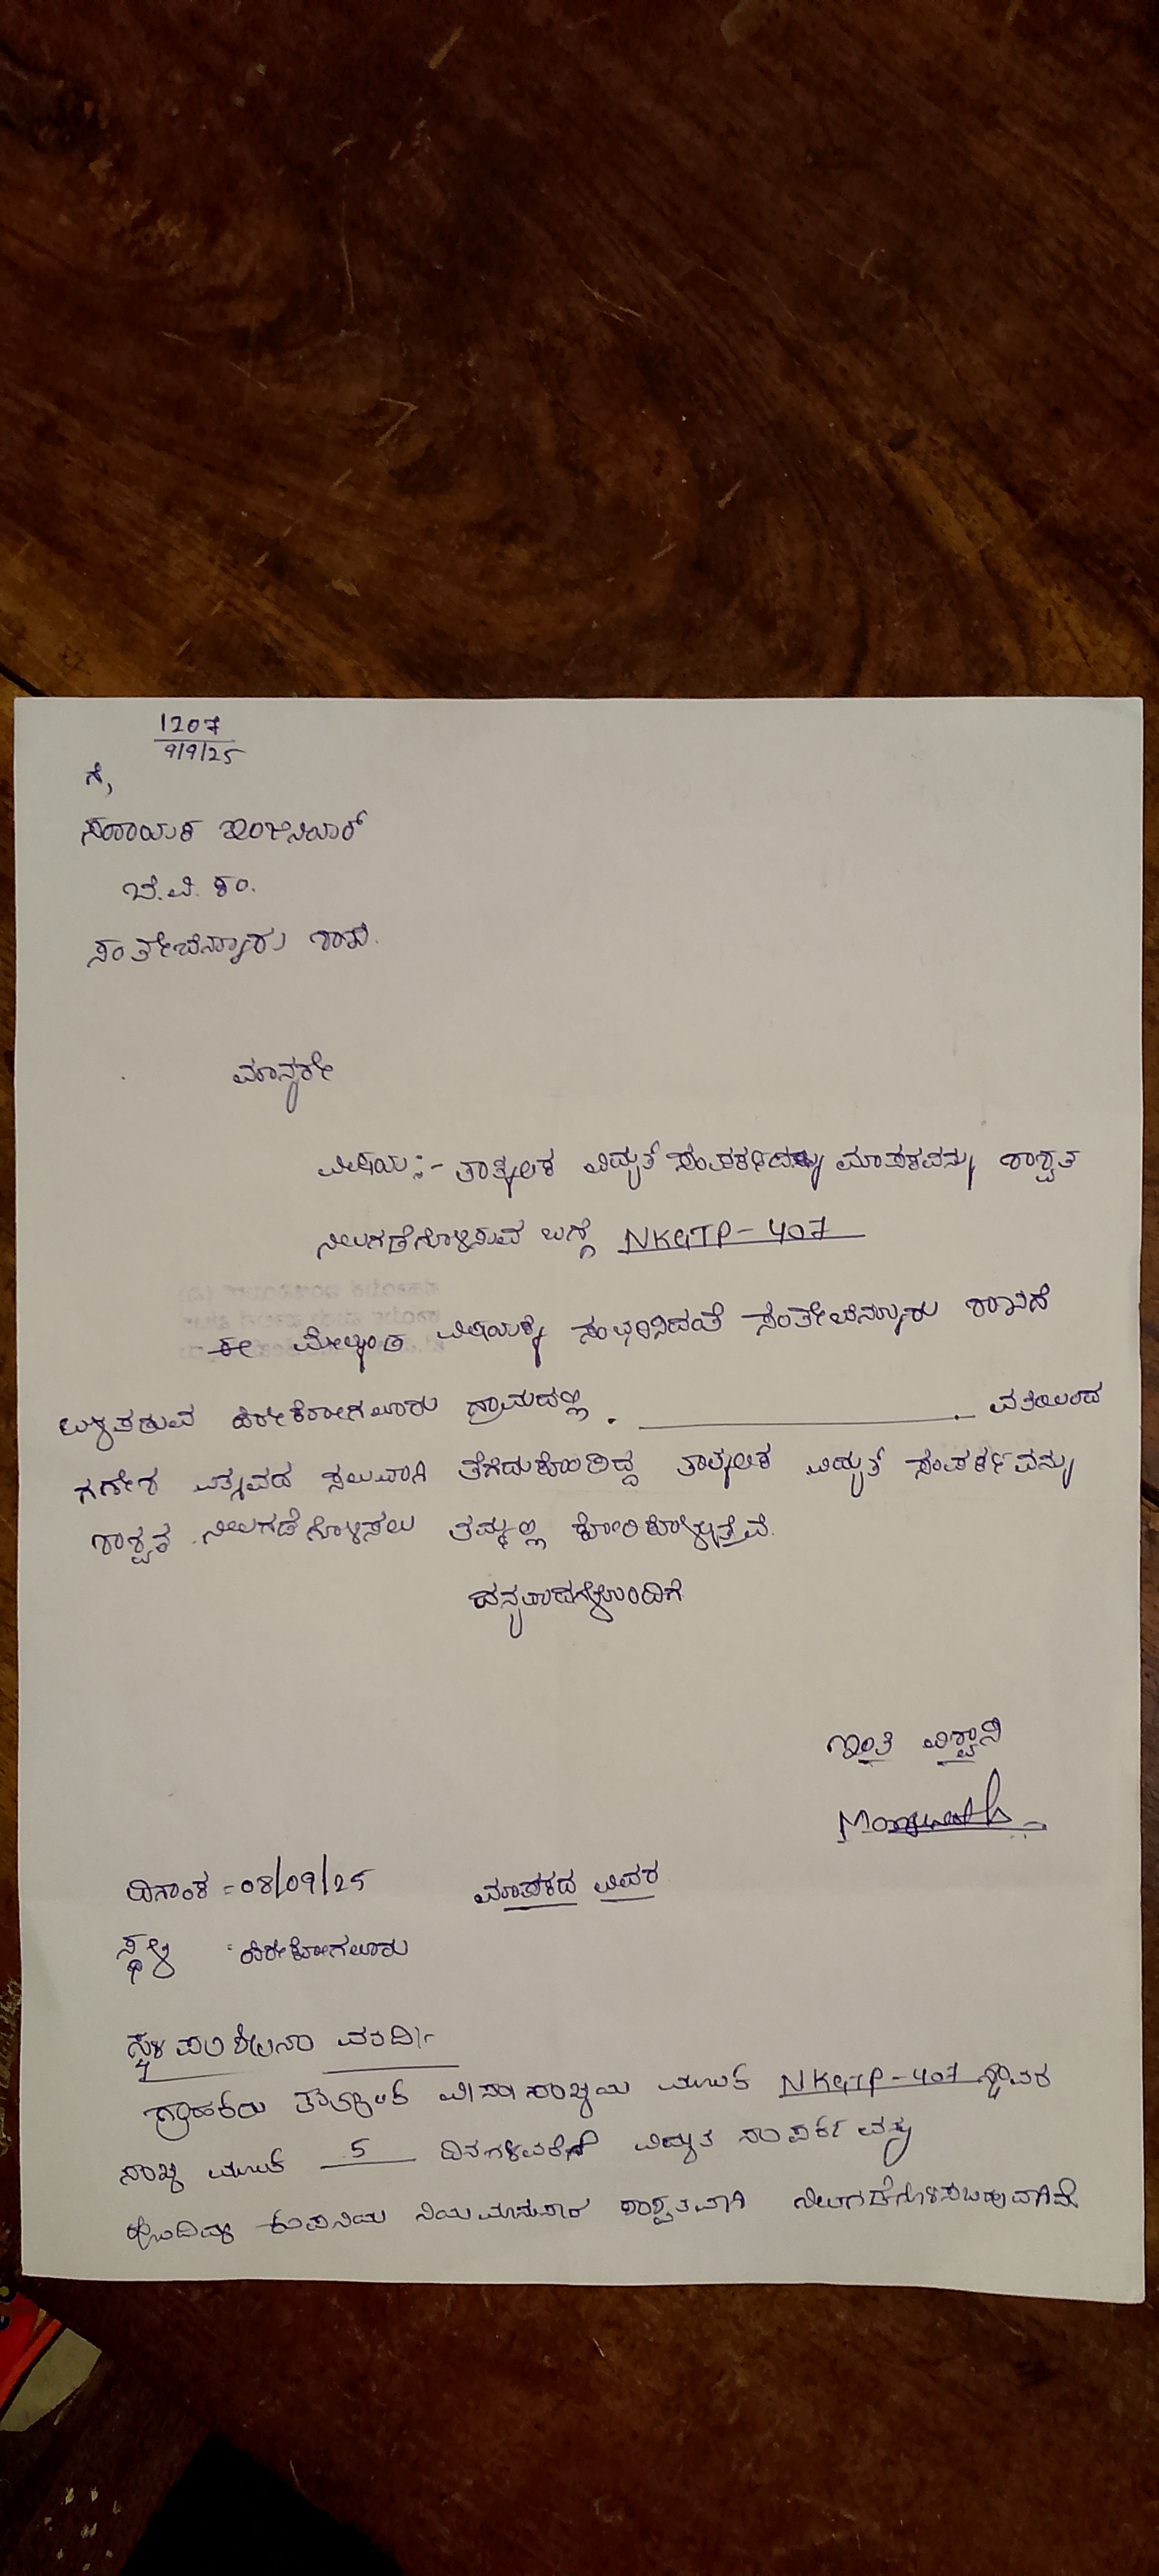 1207
9/9/25
ಗೆ,
ಸಹಾಯಕ ಇಂಜಿನಿಯರ್
ಬೆ.ವಿ. ಕಂ.
ಸಂತೇಬೆನ್ನೂರು ಶಾಖೆ.
ಮಾನ್ಯರೇ
ವಿಷಯ :- ತಾತ್ಕಲಿಕ ವಿದ್ಯುತ್ ಮಾಪಕವನ್ನು ಶಾಶ್ವತ
ನಿಲುಗಡೆಗೊಳಿಸುವ ಬಗ್ಗೆ NKGTP-407
ಈ ಮೇಲ್ಕಂಡ ವಿಷಯಕ್ಕೆ ಸಂಭಂದಿಸಿದಂತೆ ಸಂತೇಬೆನ್ನೂರು ಶಾಖೆಗೆ
ಹಿರೇಕೋಗಲೂರು ಗ್ರಾಮದಲ್ಲಿ . ವತಿಯಿಂದ
ಗಣೇಶ ಸಲುವಾಗಿ ತೆಗೆದುಕೊಂಡಿದ್ದ ತಾತ್ಕಲಿಕ ವಿದ್ಯುತ್ ಸಂಪರ್ಕವನ್ನು
ಶಾಶ್ವತ ನಿಲುಗಡೆಗೊಳಿಸಲು ತಮ್ಮಲ್ಲಿ ಕೋರಿಕೊಳ್ಳುತ್ತೇವೆ.
ಧನ್ಯವಾದಗಳೊಂದಿಗೆ
ಇಂತಿ ವಿಶ್ವಾಸಿ
Manjunath
ದಿನಾಂಕ =08/09/25 ಮಾಪಕದ ವಿವರ
ಸ್ಥಳ : ಹಿರೇಕೋಗಲೂರು
ಸ್ಥಳ ಪರಿಶೀಲನಾ ವರದಿ:-
ಗ್ರಾಹಕರು NKGTP-407 ಸ್ಥಾವರ
5 ದಿನಗಳವರೆಗೆ ವಿದ್ಯುತ ಸಂಪರ್ಕ ವನ್ನು
ನಿಯಮಾನುಸಾರ ಶಾಶ್ವತವಾಗಿ ನಿಲುಗಡೆಗೊಳಿಸಬಹುದಾಗಿದೆ